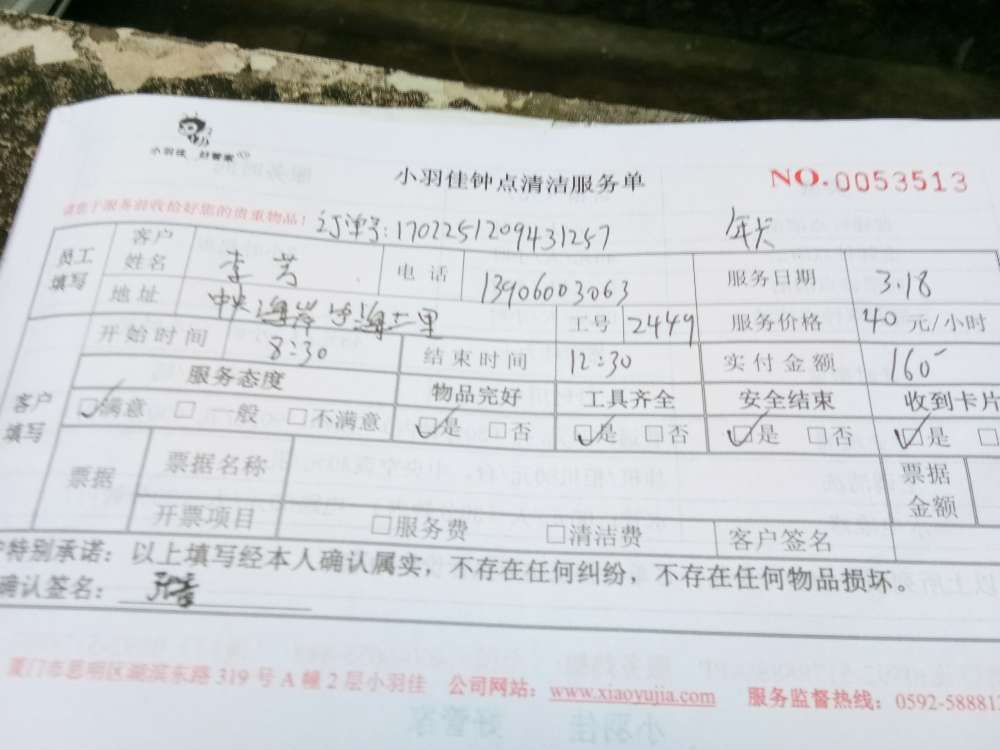 小羽佳 好管家
小羽佳钟点清洁服务单 NO.0053513
请您于服务前收拾好您的贵重物品! 订单号:1702251209431257 年卡
员工填写 客户姓名 李芳 电话 13906003063 服务日期 3.18
地址 中央海岸 海 里 工号 2449 服务价格 40 元/小时
开始时间 8:30 结束时间 12:30 实付金额 160
客户填写 服务态度 物品完好 工具齐全 安全结束 收到卡片
☑满意 □一般 □不满意 ☑是 □否 ☑是 □否 ☑是 □否 ☑是 □
票据 票据名称 票据金额
开票项目 □服务费 □清洁费 客户签名
特别承诺:以上填写经本人确认属实,不存在任何纠纷,不存在任何物品损坏。
确认签名:
厦门市思明区湖滨东路 319 号 A 幢 2 层小羽佳 公司网站:www.xiaoyujia.com 服务监督热线:0592-588812